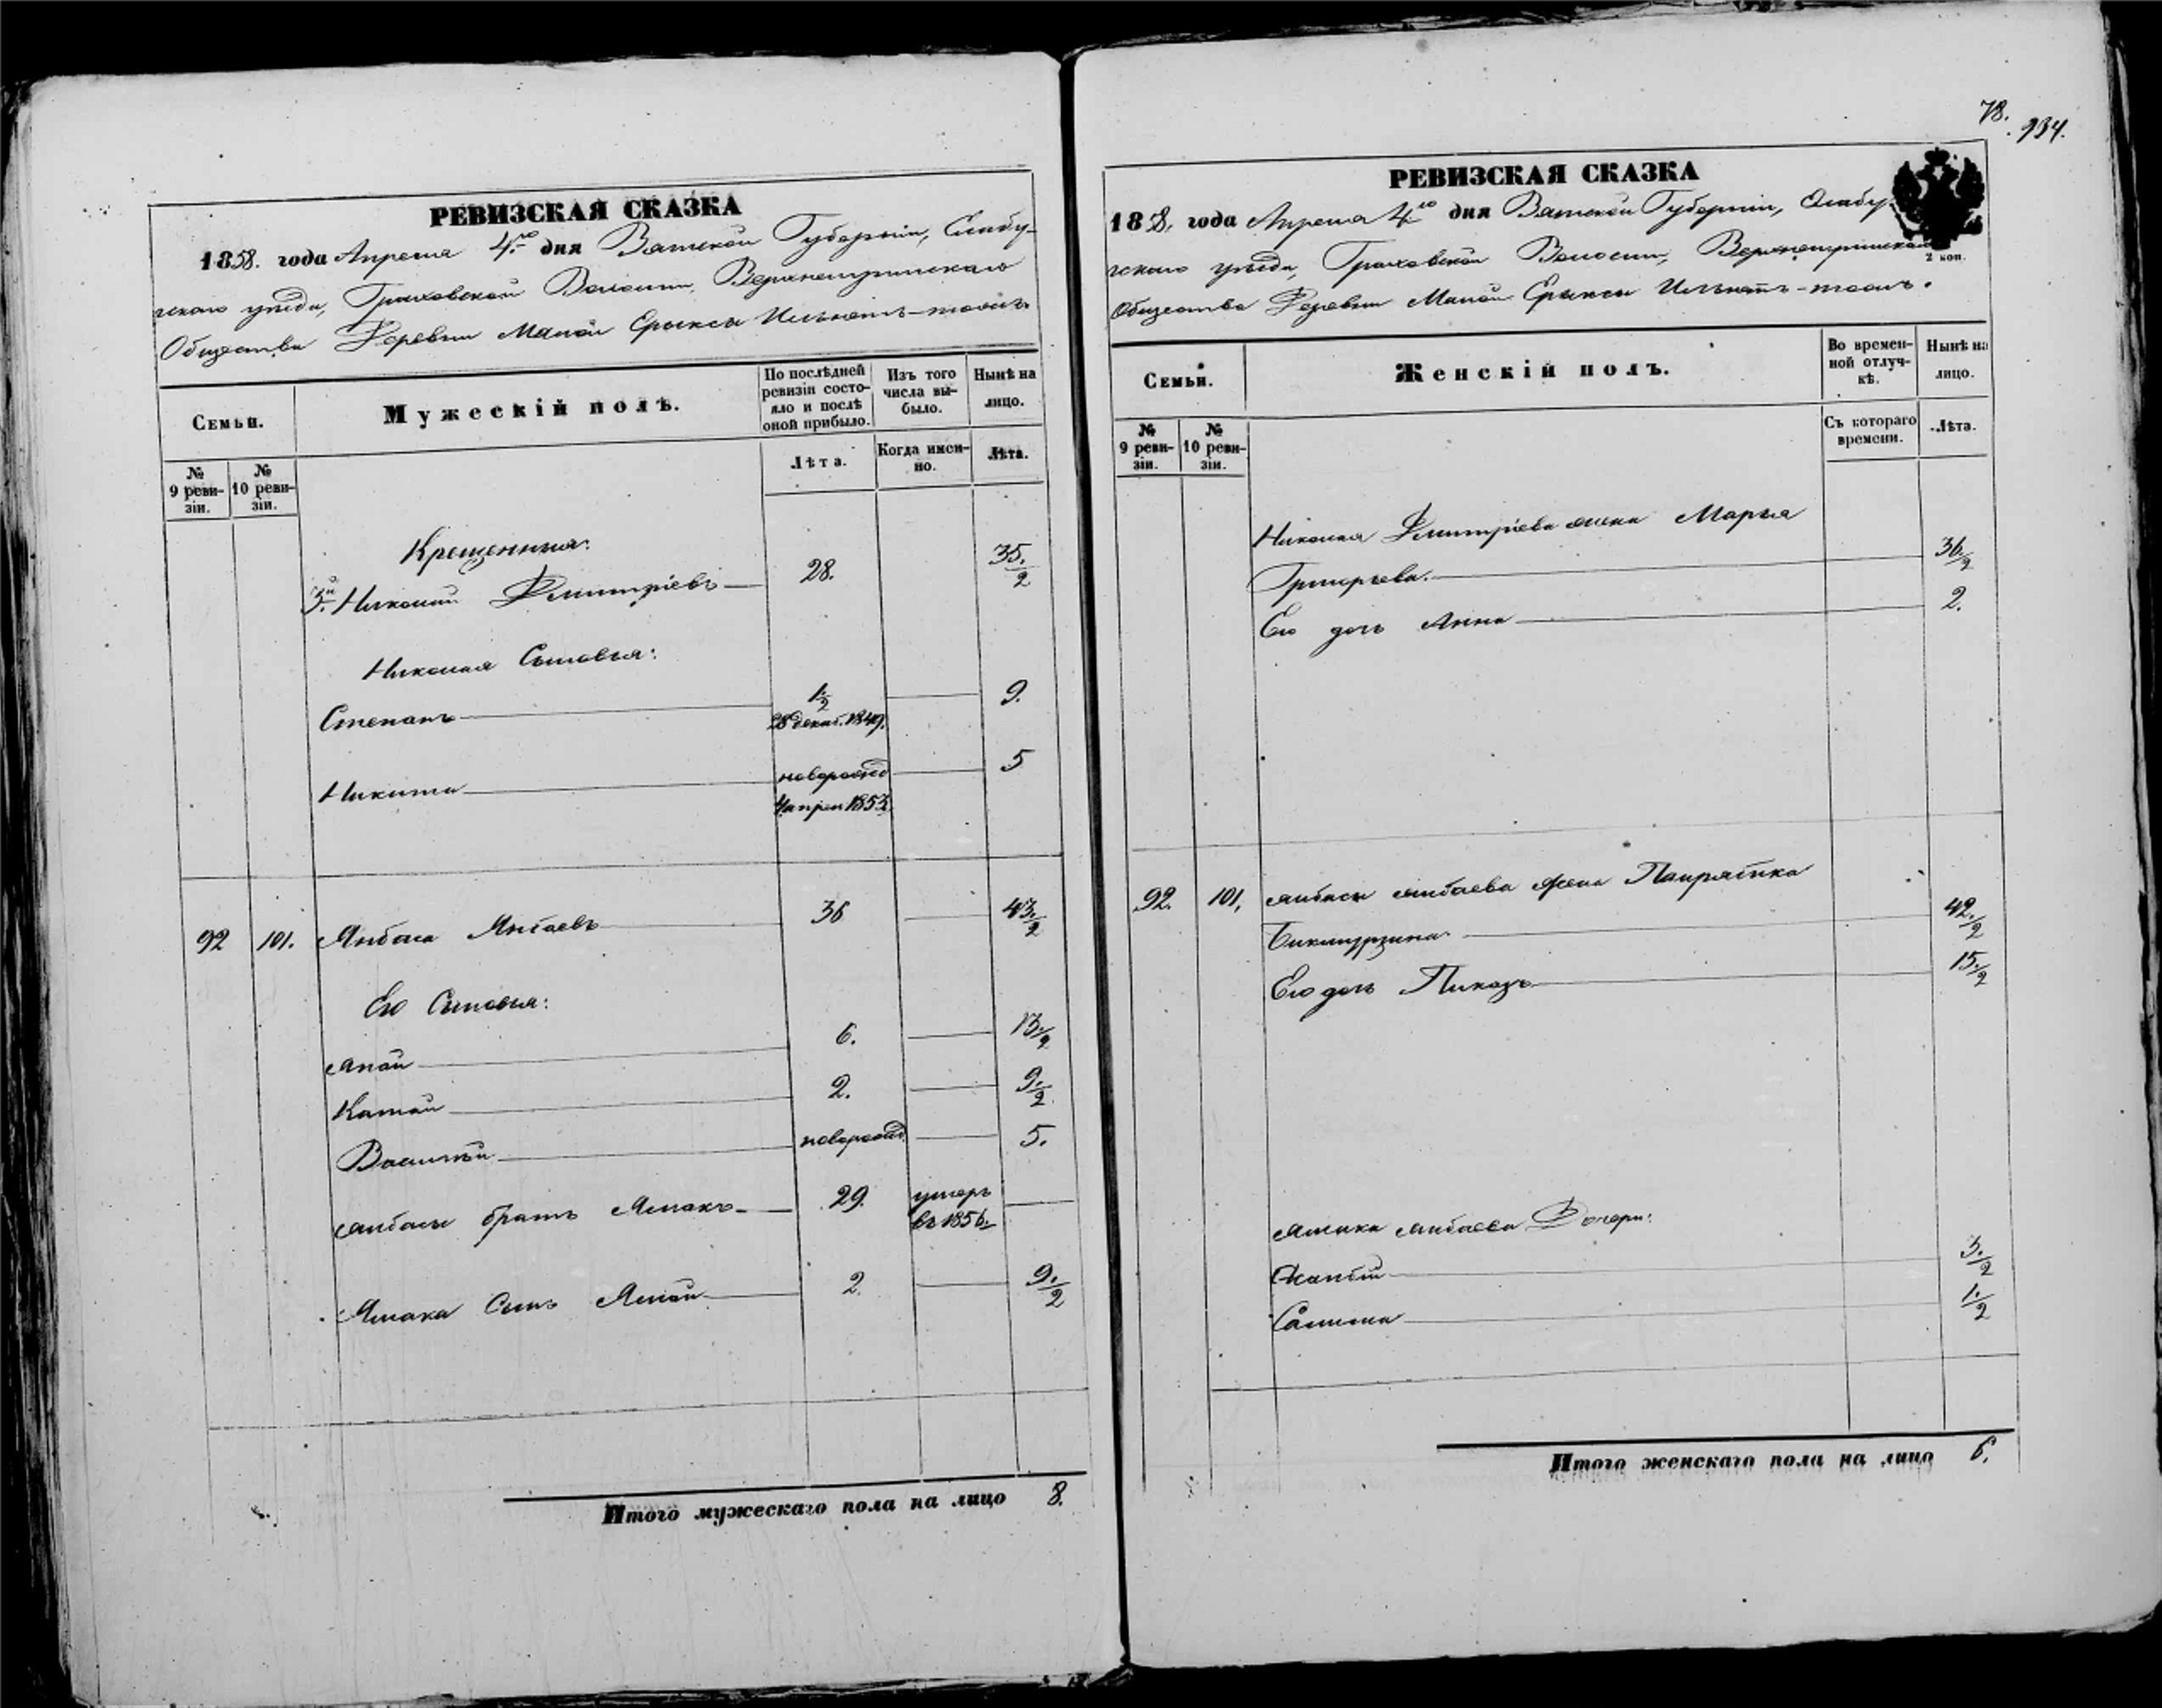 РЕВИЗСКАЯ СКАЗКА
1858. года Апреля 4го дня Вятской Губерніи, Елабу-
гскаго уѣзда, Граховской Волости,
Общества Деревни Малой Ерыксы
Семьи.
Мужескій полъ.
По послѣдней ревизіи состо-
яло и послѣ
оной прибыло.
Изъ того
числа вы-
было.
Нынѣ на
лицо.
№
9 реви-
зіи.
№
10 реви-
зіи.
Лѣта.
Когда имен-
но.
Лѣта.
Крещенныя:
3й Николай Дмитріевъ 28. 35.½
Николая Сыновья:
Степанъ ½ 9.
28 декаб. 1849.
Никита новорожд 5
4 апрел 1853.
92 101. Янбаса Янбаевъ 36 43.½
Его Сыновья:
Япай 6. 13.½
Катай 2. 9.½
новорожд. 5.
Янбасы братъ Ямакъ 29. умеръ
въ 1856.
Ямака Сынъ 2. 9.½
Итого мужескаго пола на лицо 8.
78.
934.
РЕВИЗСКАЯ СКАЗКА
1858. года Апреля 4го дня Вятской Губерніи, Елабу-
гскаго уѣзда, Граховской Волости,
2 коп.
Общества Деревни Малой Ерыксы
Семьи.
Женскій полъ.
Во времен-
ной отлуч-
кѣ.
Нынѣ на
лицо.
№
9 реви-
зіи.
№
10 реви-
зіи.
Съ котораго
времени.
Лѣта.
Николая Дмитріева жена Марья
Григорьева. 36.½
Его дочь Анна 2.
92. 101. Янбасы Янбаева жена
Бикмурзина 42.½
Его дочь 15.½
Ямака Янбаева Дочери:
3.½
1.½
Итого женскаго пола на лицо 6.